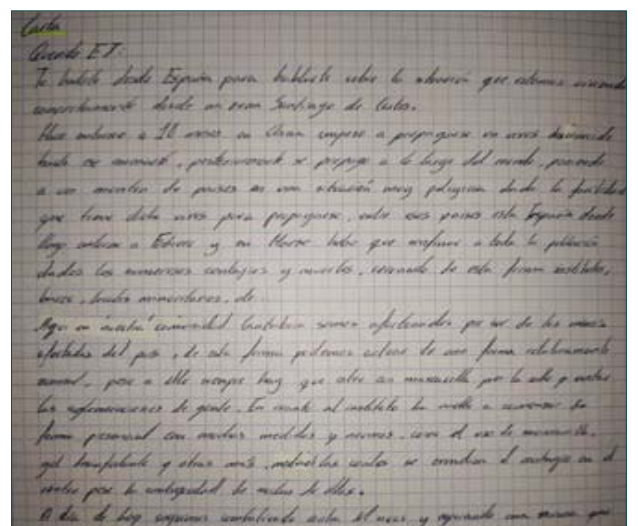 Carta
Querido E.T:
Te hablo desde España para hablarte sobre la situación que estamos viviendo
concretamente desde un Santiago de Cartes.
Hace entorno a 10 meses en China empezó a propagarse un virus
hasta ese momento, posteriormente se propagó a lo largo del mundo, poniendo
a un montón de países en una situación muy peligrosa dada la facilidad
que tiene dicho virus para propagarse, entre esos países esta España donde
llego entorno a Febrero y en Marzo hubo que confinar a toda la población
dados los numerosos contagios y muertes, cerrando de esta forma institutos,
bares, locales minoritarios, etc.
Aqui en nuestra comunidad Cantabria somos afortunados por ser de las menos
afectadas del pais, de esta forma podemos actuar de una forma relativamente
normal, pese a ello siempre hay que salir con mascarilla por la calle y evitar
las aglomeraciones de gente. En cuanto al instituto ha vuelto a comenzar de
forma presencial con muchas medidas y normas, como el uso de mascarilla,
gel y otras más, las cuales se el contagio en el
centro pese la de muchas de ellas.
A dia de hoy seguimos combatiendo este virus, y esperando una vacuna que